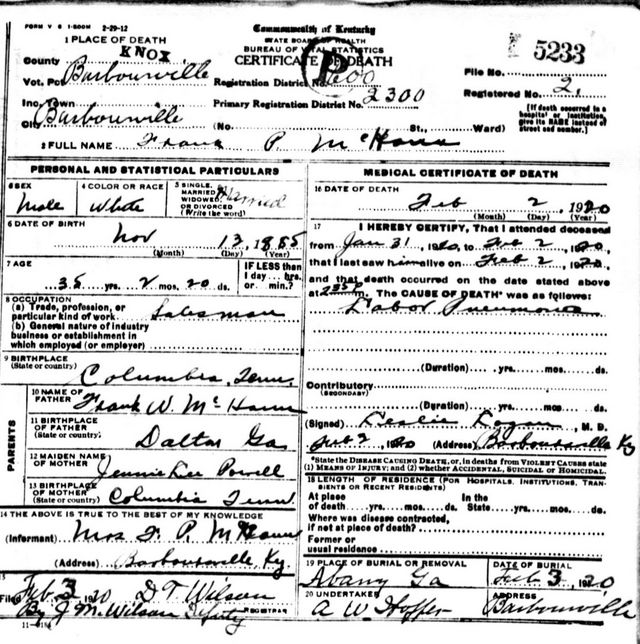 FORM V S 1-500M 2-29-12
Commonwealth of Kentucky
STATE BOARD OF HEALTH
BUREAU OF VITAL STATISTICS
CERTIFICATE OF DEATH
5233
1 PLACE OF DEATH
KNOX
County Barbourville
Vot. Pct.
Inc. Town Barbourville
City
Registration District No. 600
Primary Registration District No. 2300
(No. St., Ward)
File No.
Registered No. 2.
[If death occurred in a hospital or institution, give its NAME instead of street and number.]
2 FULL NAME Frank P. McHann
PERSONAL AND STATISTICAL PARTICULARS
3 SEX
Male
4 COLOR OR RACE
White
5 SINGLE, MARRIED, WIDOWED, OR DIVORCED (Write the word)
Married
6 DATE OF BIRTH
Nov 13, 1885
(Month) (Day) (Year)
7 AGE
35 yrs. 2 mos. 20 ds.
IF LESS than 1 day... hrs. or min.?
8 OCCUPATION
(a) Trade, profession, or particular kind of work Salesman
(b) General nature of industry business or establishment in which employed (or employer)
9 BIRTHPLACE
(State or country) Columbia, Tenn.
PARENTS
10 NAME OF FATHER Frank W. McHann
11 BIRTHPLACE OF FATHER (State or country) Dalton Ga
12 MAIDEN NAME OF MOTHER Jennie Lee Powell
13 BIRTHPLACE OF MOTHER (State or country) Columbia Tenn.
14 THE ABOVE IS TRUE TO THE BEST OF MY KNOWLEDGE
(Informant) Mrs F. P. McHann
(Address) Barbourville Ky.
15
Filed Feb 3, 1920 D T Wilson
REGISTRAR
By J M Wilson Deputy
MEDICAL CERTIFICATE OF DEATH
16 DATE OF DEATH
Feb 2, 1920
(Month) (Day) (Year)
17 I HEREBY CERTIFY, That I attended deceased
from Jan 31, 1920, to Feb 2, 1920,
that I last saw him alive on Feb 2, 1920,
and that death occurred on the date stated above
at m. The CAUSE OF DEATH* was as follows:
Labor Pneumonia
(Duration) yrs. mos. ds.
Contributory
(SECONDARY)
(Duration) yrs. mos. ds.
(Signed) Leslie Logan, M. D.
Feb 2, 1920 (Address) Barbourville Ky
*State the DISEASE CAUSING DEATH, or, in deaths from VIOLENT CAUSES state (1) MEANS OF INJURY; and (2) whether ACCIDENTAL, SUICIDAL or HOMICIDAL.
18 LENGTH OF RESIDENCE (FOR HOSPITALS, INSTITUTIONS, TRANSIENTS OR RECENT RESIDENTS)
At place of death yrs. mos. ds. In the State yrs. mos. ds.
Where was disease contracted, if not at place of death?
Former or usual residence
19 PLACE OF BURIAL OR REMOVAL
Albany Ga
DATE OF BURIAL
Feb 3, 1920
20 UNDERTAKER
A W Hopper
ADDRESS
Barbourville